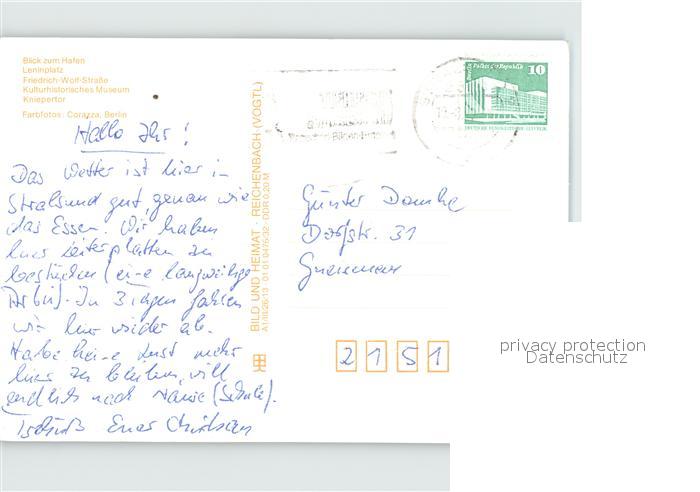 Blick zum Hafen
Leninplatz
Friedrich-Wolf-Straße
Kulturhistorisches Museum
Kniepertor
Farbfotos: Corazza, Berlin
Hallo Ihr!
Das Wetter ist hier in
Stralsund gut, genau wie
das Essen. Wir haben
hier Leiterplatten zu
bestücken (eine langweilige
Arbeit). In 3 Tagen fahren
wir hier wieder ab.
Habe keine Lust mehr
hier zu bleiben, will
endlich nach Hause (Schule).
Tschüß Euer Christian
BILD UND HEIMAT REICHENBACH (VOGTL)
A1/III/26/13 01 01 0475/32 DDR 0,20 M
Palast der Republik
10
Günter
Dorfstr. 31
2151
privacy protection
Datenschutz